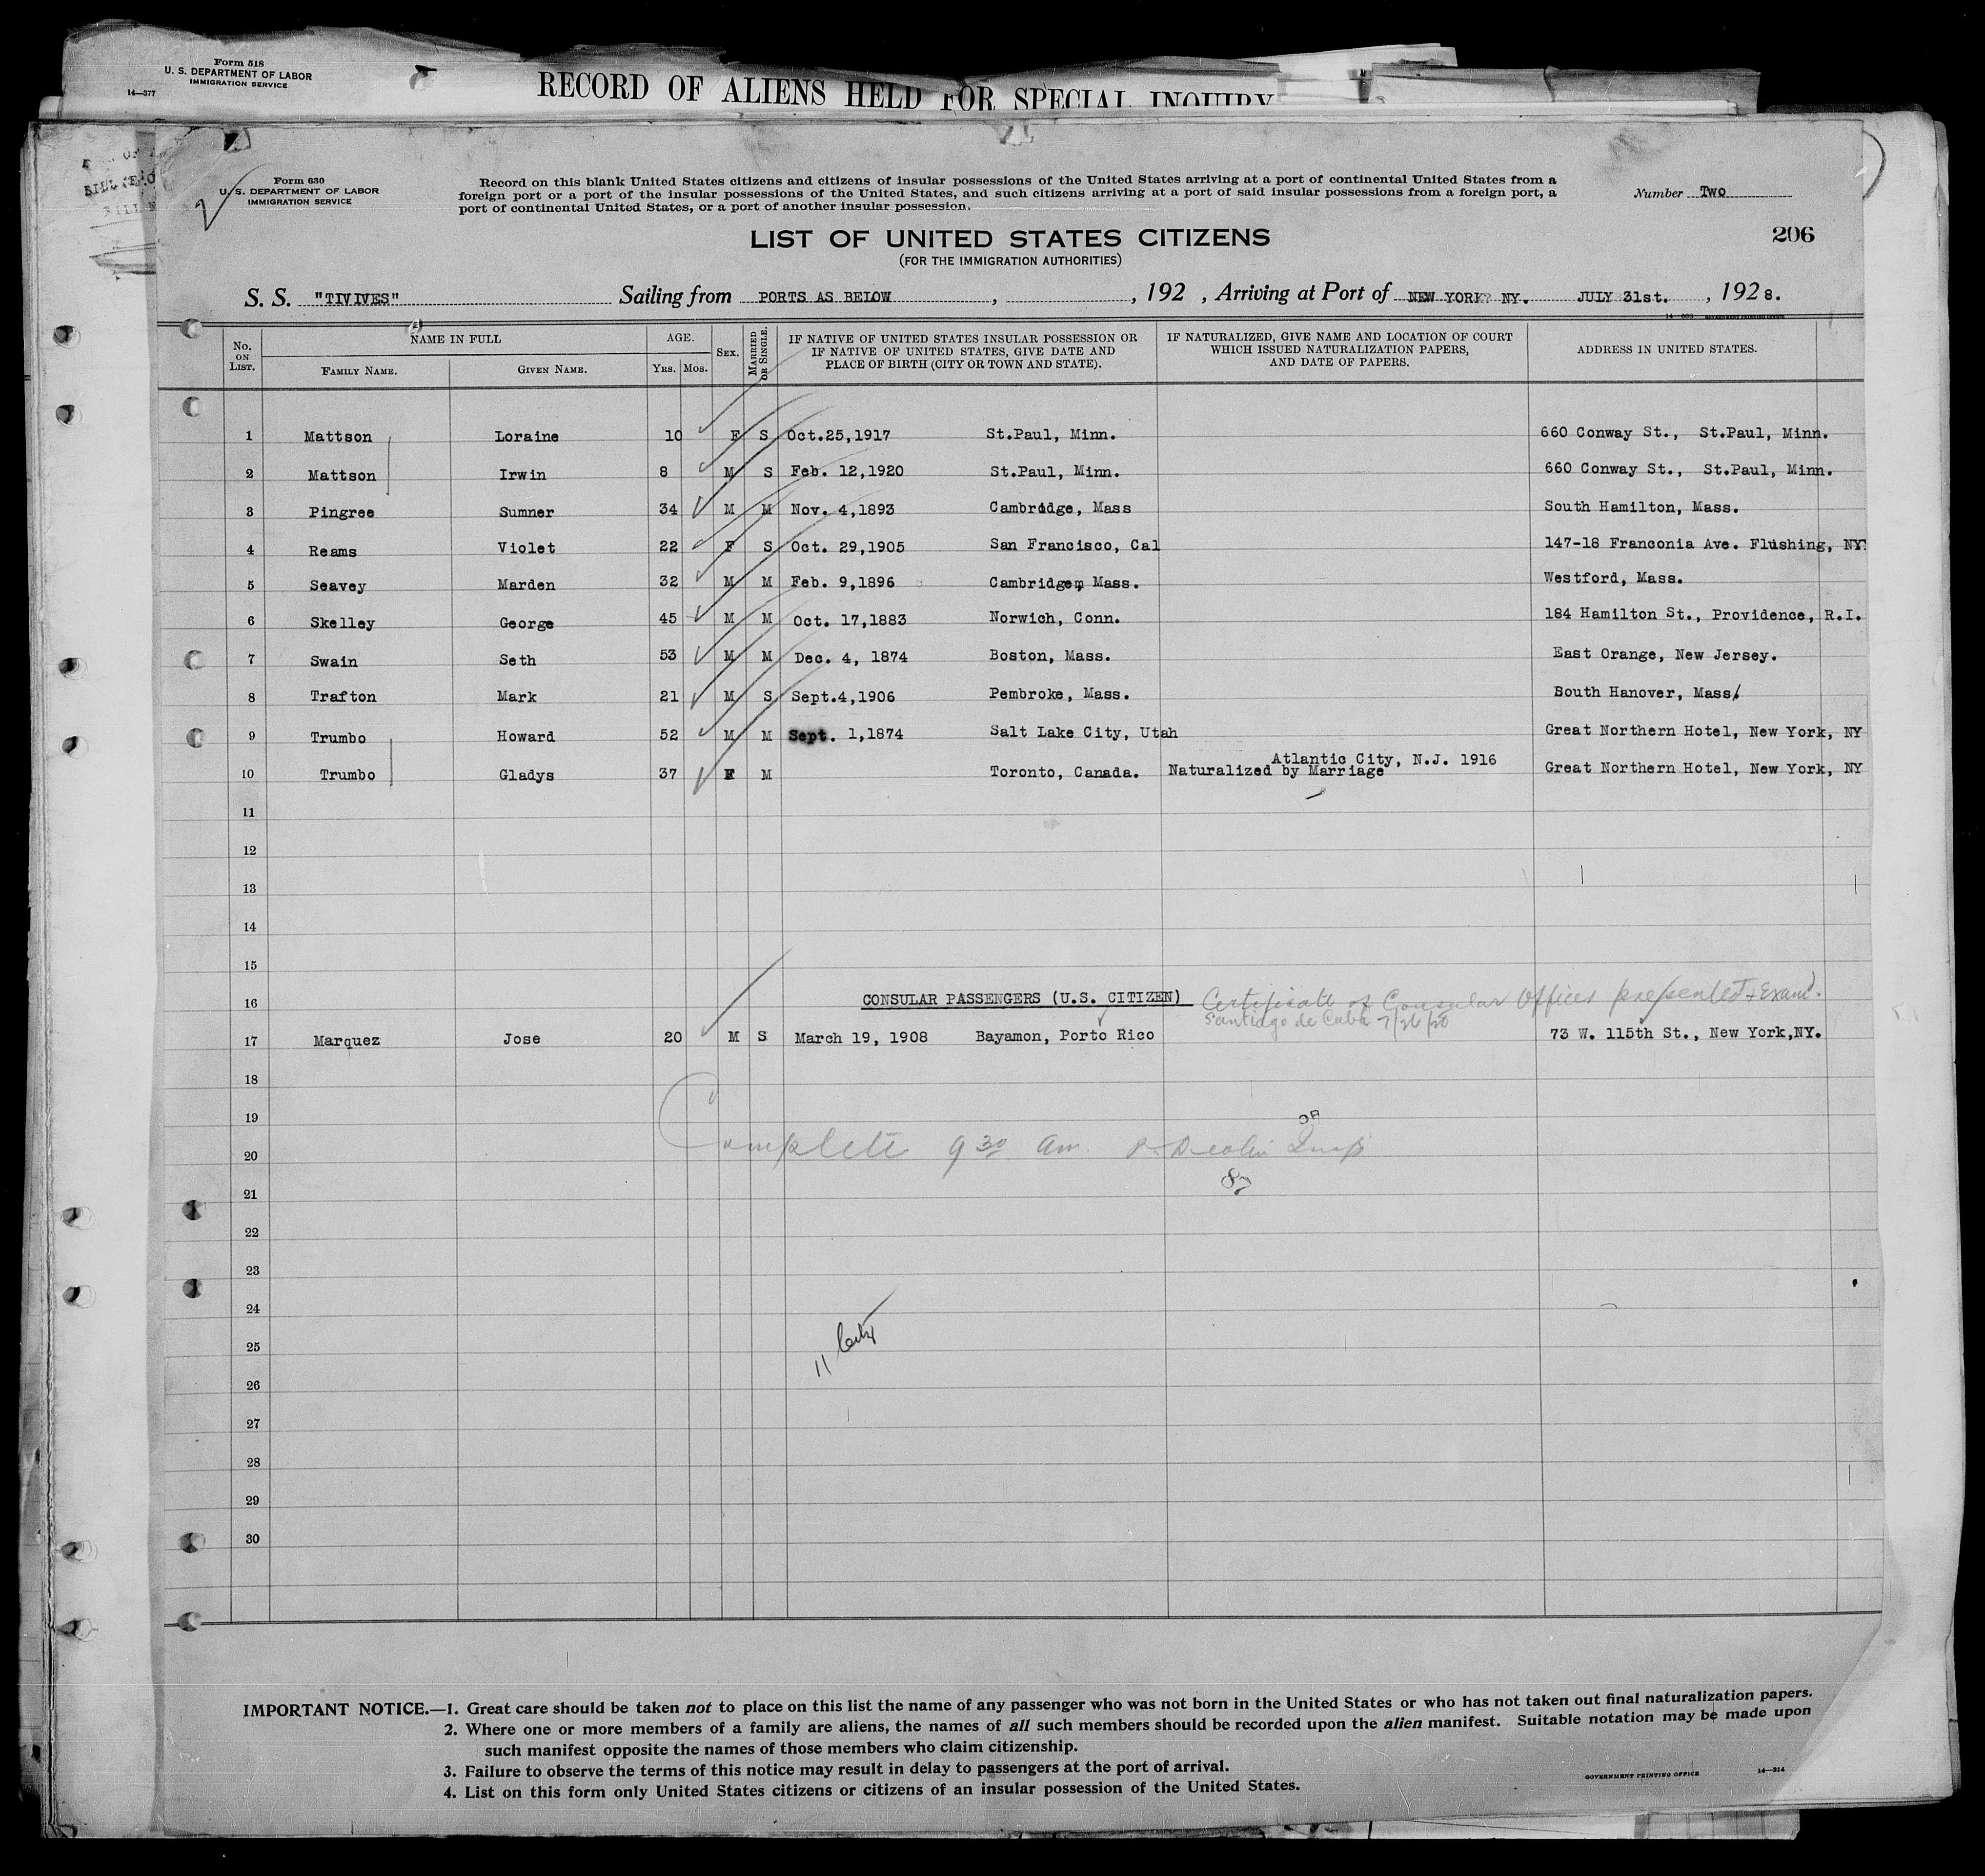 Form 518
U. S. DEPARTMENT OF LABOR
IMMIGRATION SERVICE
14—377
RECORD OF ALIENS HELD FOR SPECIAL INQUIRY
Form 630
U. S. DEPARTMENT OF LABOR
IMMIGRATION SERVICE
Record on this blank United States citizens and citizens of insular possessions of the United States arriving at a port of continental United States from a
foreign port or a port of the insular possessions of the United States, and such citizens arriving at a port of said insular possessions from a foreign port, a
port of continental United States, or a port of another insular possession.
Number Two
206
LIST OF UNITED STATES CITIZENS
(FOR THE IMMIGRATION AUTHORITIES)
S. S. "TIVIVES" Sailing from PORTS AS BELOW , , 192 , Arriving at Port of NEW YORK NY. JULY 31st. , 1928.
No. ON LIST. NAME IN FULL AGE. SEX. MARRIED OR SINGLE. IF NATIVE OF UNITED STATES INSULAR POSSESSION OR IF NATIVE OF UNITED STATES, GIVE DATE AND PLACE OF BIRTH (CITY OR TOWN AND STATE). IF NATURALIZED, GIVE NAME AND LOCATION OF COURT WHICH ISSUED NATURALIZATION PAPERS, AND DATE OF PAPERS. ADDRESS IN UNITED STATES.
FAMILY NAME. GIVEN NAME. YRS. MOS.
1 Mattson Loraine 10 F S Oct.25,1917 St.Paul, Minn. 660 Conway St., St.Paul, Minn.
2 Mattson Irwin 8 M S Feb. 12,1920 St.Paul, Minn. 660 Conway St., St.Paul, Minn.
3 Pingree Sumner 34 M M Nov. 4,1893 Cambridge, Mass South Hamilton, Mass.
4 Reams Violet 22 F S Oct. 29,1905 San Francisco, Cal 147-18 Franconia Ave. Flushing, NY.
5 Seavey Marden 32 M M Feb. 9,1896 Cambridge, Mass. Westford, Mass.
6 Skelley George 45 M M Oct. 17,1883 Norwich, Conn. 184 Hamilton St., Providence, R.I.
7 Swain Seth 53 M M Dec. 4, 1874 Boston, Mass. East Orange, New Jersey.
8 Trafton Mark 21 M S Sept.4,1906 Pembroke, Mass. Bouth Hanover, Mass.
9 Trumbo Howard 52 M M Sept. 1,1874 Salt Lake City, Utah Great Northern Hotel, New York, NY
Atlantic City, N.J. 1916
10 Trumbo Gladys 37 F M Toronto, Canada. Naturalized by Marriage Great Northern Hotel, New York, NY
11
12
13
14
15
16 CONSULAR PASSENGERS (U.S. CITIZEN) Certificate of Consular Officer presented & Examd.
Santiago de Cuba 7/26/28
17 Marquez Jose 20 M S March 19, 1908 Bayamon, Porto Rico 73 W. 115th St., New York,NY.
18
19
20 Complete 9 30 am. Insp
21
22
23
24
25
11
26
27
28
29
30
IMPORTANT NOTICE.—1. Great care should be taken not to place on this list the name of any passenger who was not born in the United States or who has not taken out final naturalization papers.
2. Where one or more members of a family are aliens, the names of all such members should be recorded upon the alien manifest. Suitable notation may be made upon
such manifest opposite the names of those members who claim citizenship.
3. Failure to observe the terms of this notice may result in delay to passengers at the port of arrival.
4. List on this form only United States citizens or citizens of an insular possession of the United States.
GOVERNMENT PRINTING OFFICE 14—314